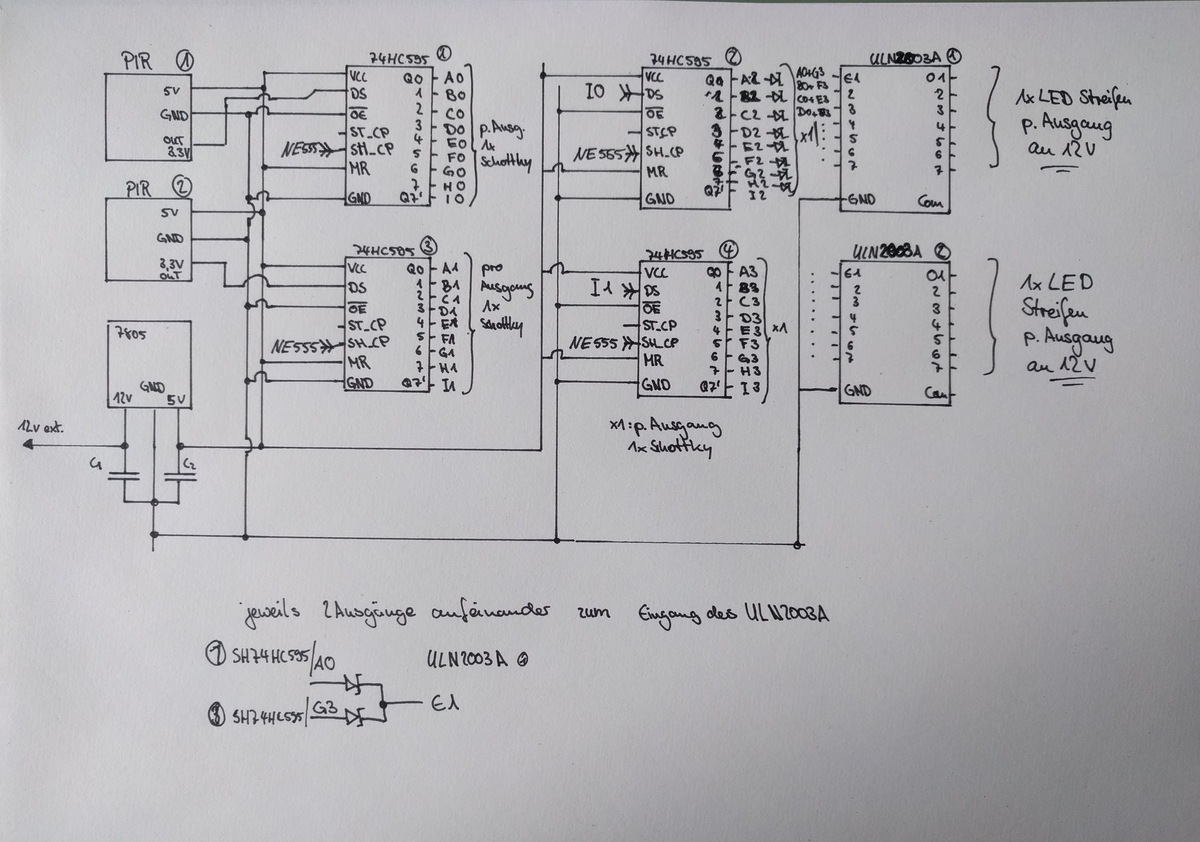 PIR 1
5V
GND
OUT
3.3V
PIR 2
5V
GND
3,3V
OUT
7805
GND
12V 5V
12V ext.
C1 C2
74HC595 1
VCC Q0 A0
DS 1 B0
OE 2 C0
ST_CP 3 D0
4 E0
NE555 SH_CP 5 F0
MR 6 G0
7 H0
GND Q7' I0
p. Ausg.
1x
Schottky
74HC595 3
VCC Q0 A1
DS 1 B1
OE 2 C1
3 D1
ST_CP 4 E1
NE555 SH_CP 5 F1
MR 6 G1
7 H1
GND Q7' I1
pro
Ausgang
1x
Schottky
74HC595 2
VCC Q0 A2
I0 DS 1 B2
OE 2 C2
ST_CP 3 D2
4 E2
NE555 SH_CP 5 F2
MR 6 G2
7 H2
GND Q7' I2
x1
74HC595 4
VCC Q0 A3
I1 DS 1 B3
OE 2 C3
3 D3
ST_CP 4 E3
NE555 SH_CP 5 F3
MR 6 G3
7 H3
GND Q7' I3
x1
x1: p. Ausgang
1x Schottky
ULN2003A 1
A0+G3 E1 O1
B0+F3 2 2
C0+E3 3 3
D0+B3 4 4
5 5
6 6
7 7
GND Com
1x LED Streifen
p. Ausgang
an 12V
ULN2003A 2
E1 O1
2 2
3 3
4 4
5 5
6 6
7 7
GND Com
1x LED
Streifen
p. Ausgang
an 12V
jeweils 2 Ausgänge aufeinander zum Eingang des ULN2003A
1 SH74HC595/A0 ULN2003A
SH74HC595/G3 E1